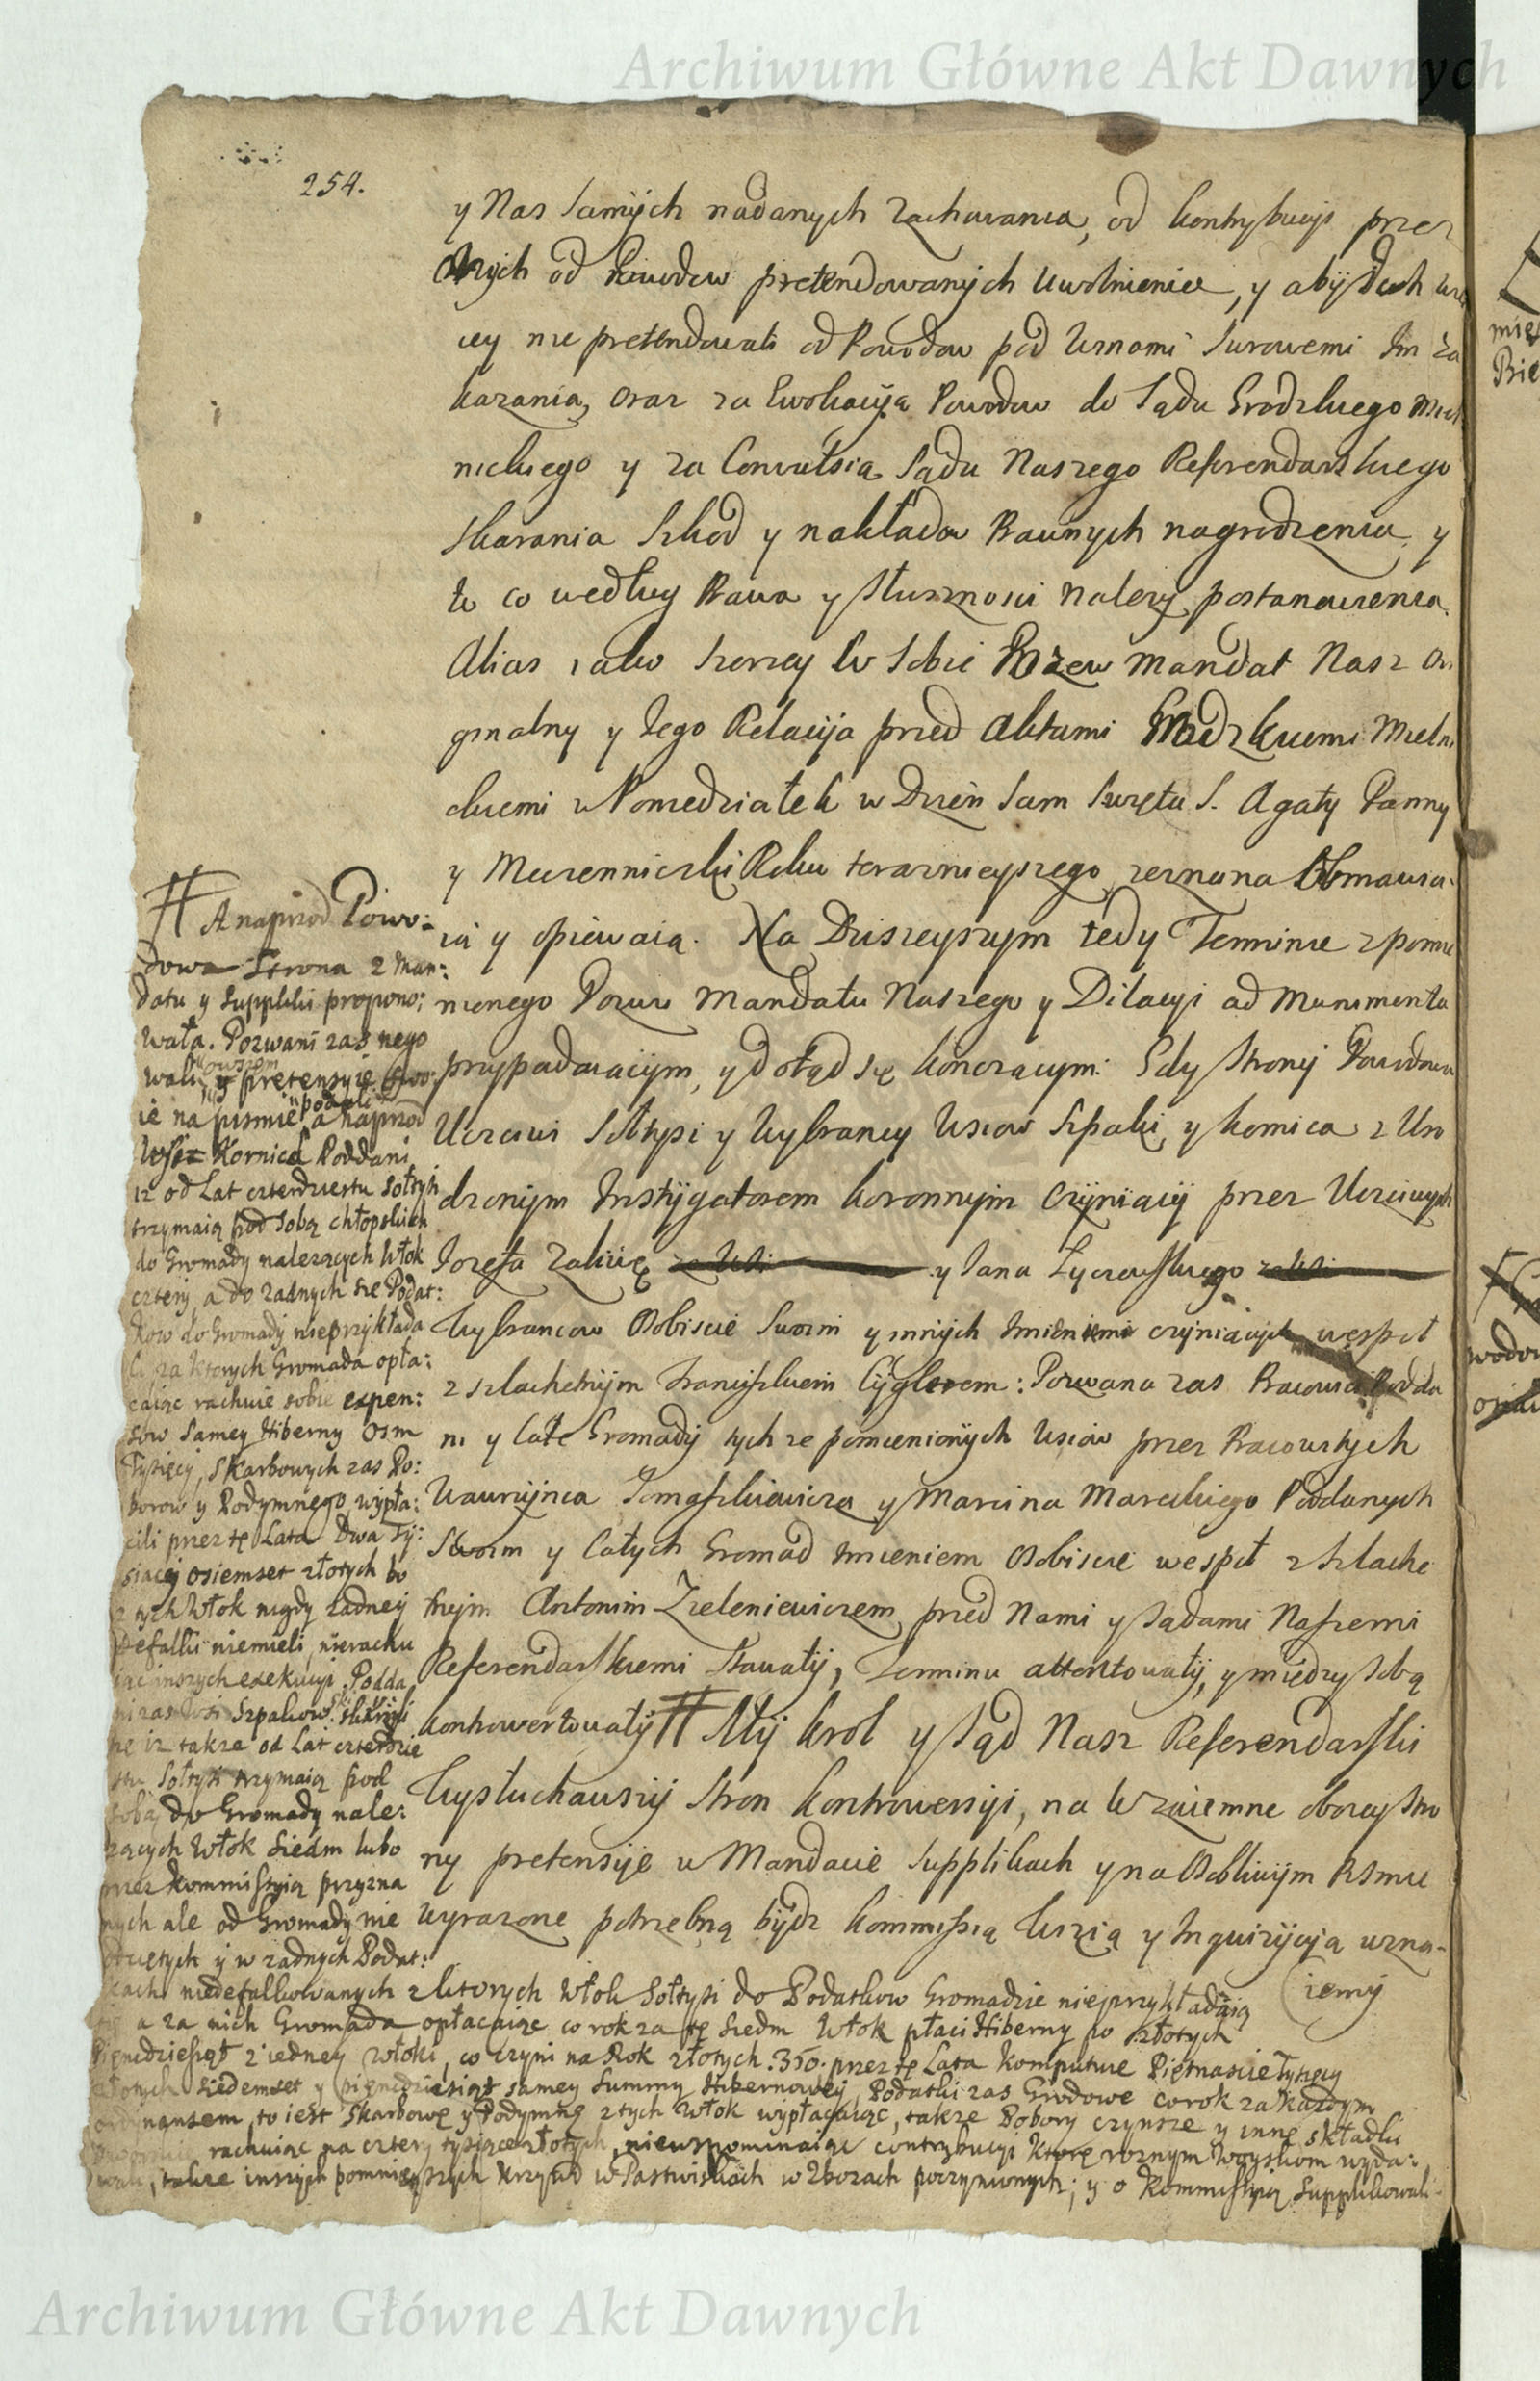 Archiwum Główne Akt Dawnych
254.
y Nas samych nadanych zachowania, od kontrybucyi przez
onych od Powodow pretendowanych uwolnienie, y abÿ tych
cey nie pretendowali od Powodow pod winami surowemi Im za
kazania, oraz za Ewokacÿą Powodow do Sądu Grodzkiego Miel
nickiego y za Convulsią Sądu Naszego Referendarskiego
skarania szkod y nakładow Prawnych nagrodzenia, y
to co według Prawa y słusznosci nalezy postanowienia.
Alias iako szerzey w sobie Pozew Mandat Nasz Ory
ginalny y Iego Relacÿa przed Aktami Grodzkiemi Mielni
ckiemi w Poniedziałek w Dzien sam Swięta S. Agaty Panny
y Męczenniczki Roku teraznieyszego zeznana obmawia
ią y opiewaią. Na Dzisieyszym tedy Terminie z pomie
nionego Pozwu Mandatu Naszego y Dilacyi ad Munimenta
przypadaiącym, y dotąd się konczącym: Gdy Strony Powodowa
Uczciwi Sołtysi y Wybrancy wsiow Szpaki y Kornica z Uro
dzonÿm Instÿgatorem Koronnÿm czÿniącÿ przez Uczciwych
Iozefa Zalucę z Wsi y Iana Łyczewskiego z Wsi
Wybrancow osobiscie swoim y innÿch imieniem czyniących wespoł
z szlachetnÿm Franciszkiem Cÿglerem: Pozwana zas Pracowici Podda
ni y całe Gromadÿ tych ze pomienionÿch wsiow przez Pracowitych
Wawrzÿnca Tomaszkiewicza y Marcina Mareckiego Poddanych
swoim y całych Gromad imieniem osobiscie wespoł z szlache
tnym Antonim Zieleniewiczem przed Nami y Sądami Naszemi
Referendarskiemi stawałÿ, Terminu attentowałÿ, y między sobą
kontrowertowałÿ # Mÿ Krol y Sąd Nasz Referendarski
Wysłuchawszÿ stron kontrowersÿi, na wzaiemne oboiey stro
ny pretensÿe w Mandacie supplikach y na osobliwÿm Pismie
wyrazone potrzebną bÿdz kommissią wizią y Inquizÿcÿą uzna-
iemÿ
# A naprzod Powo:
dowa Strona z Man:
datu y Suppliki propono:
wała. Pozwani zas nego
wali, y pretensyie swo:
ie na pismie podali a naprzod
Wsi Kornica Poddani
iz od Lat czterdziestu Sołtysi
trzymaią pod sobą chłopskich
do Gromady nalezących Włok
cztery, a do zadnych się Podat:
kow do Gromady nieprzykłada
ią za ktorych Gromada opła:
caiąc rachuie sobie expen:
sow samey Hiberny osm
Tysięcy, Skarbowych zas Po:
borow y Podymnego wypła:
cili przez te Lata Dwa Ty:
siącej osiemset złotych bo
z tych Włok nigdy zadney
Defalki niemieli, nierachu
iąc inszych exekucyi. Podda
ni zas Wsi Szpakow skarzyli
się iz takze od Lat czterdzie
stu Sołtysi trzymaią pod
sobą do Gromady nale:
zących Włok siedm lubo
przez kommissyią przyzna
nych ale od Gromady nie
y w zadnych Podat:
kach niedefalkowanych z ktorych Włok Sołtysi do Podatkow Gromadzie nieprzykładaią
się a za nich Gromada opłacaiąc co rok za te siedm Włok płaci Hiberny po złotych
Piędziesiąt z iedney Włoki, co czyni na Rok złotych .350. przez te Lata komputuie Piętnascie Tysięcy
złotych siedemset y pięndziesiąt samey summy Hibernowey, Podatki zas Grodowe co rok za kazdym
ordynansem, to iest Skarbowe y Podymne z tych Włok wypłacaiąc, takze Pobory czynsze y inne składki
rachuiąc na cztery tysiące złotych, niewspominaiąc contrybucyi ktore roznym Woyskom wyda:
wali, takze inszych pomnieyszych krzywd w Pastwiskach w Zbozach poczynionych; y o Kommissyią supplikowali.
Archiwum Główne Akt Dawnych